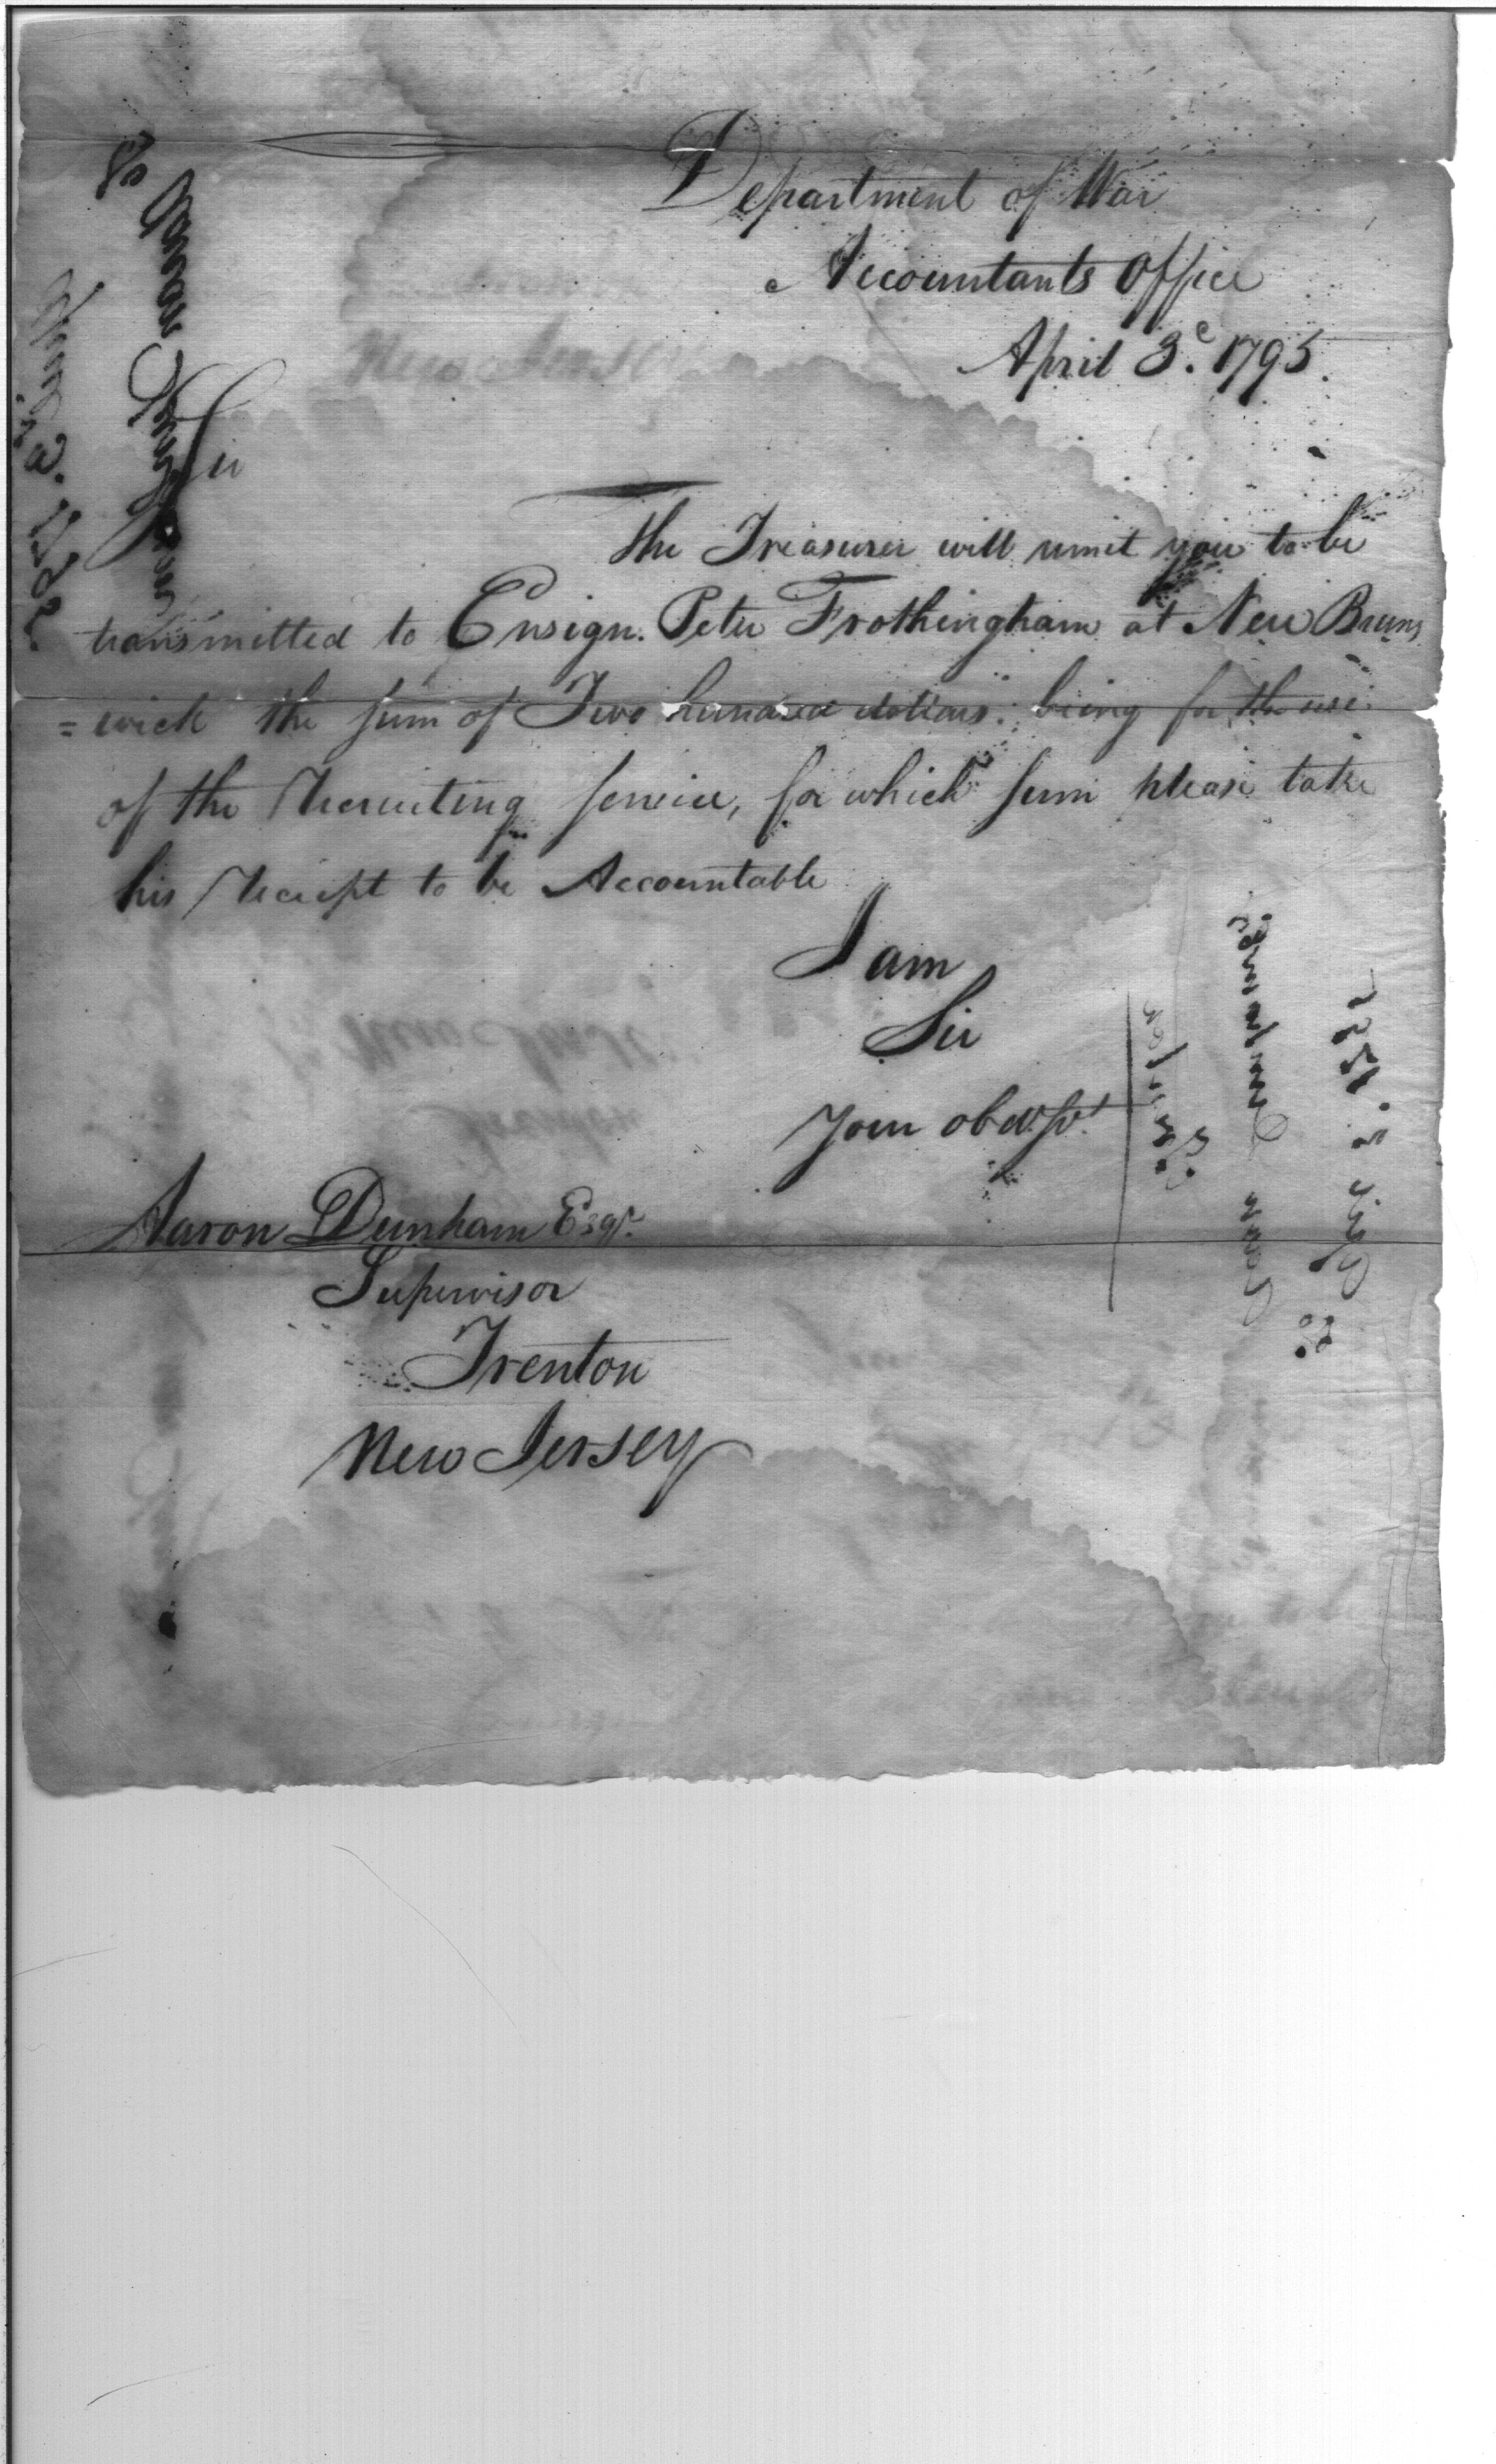 Department of War
Accountants Office
April 3.d 1795.
Sir
The Treasurer will remit you to be
transmitted to Ensign. Peter Frothingham at New Bruns
=wick the sum of Two hundred dollars. being for the use
of the Recruiting service, for which sum please take
his Receipt to be Accountable
I am
Sir
Your obed. Sv.t
Aaron Dunham Esqr.
Supervisor
Trenton
New Jersey
Aaron Dunham
April 3. 1795